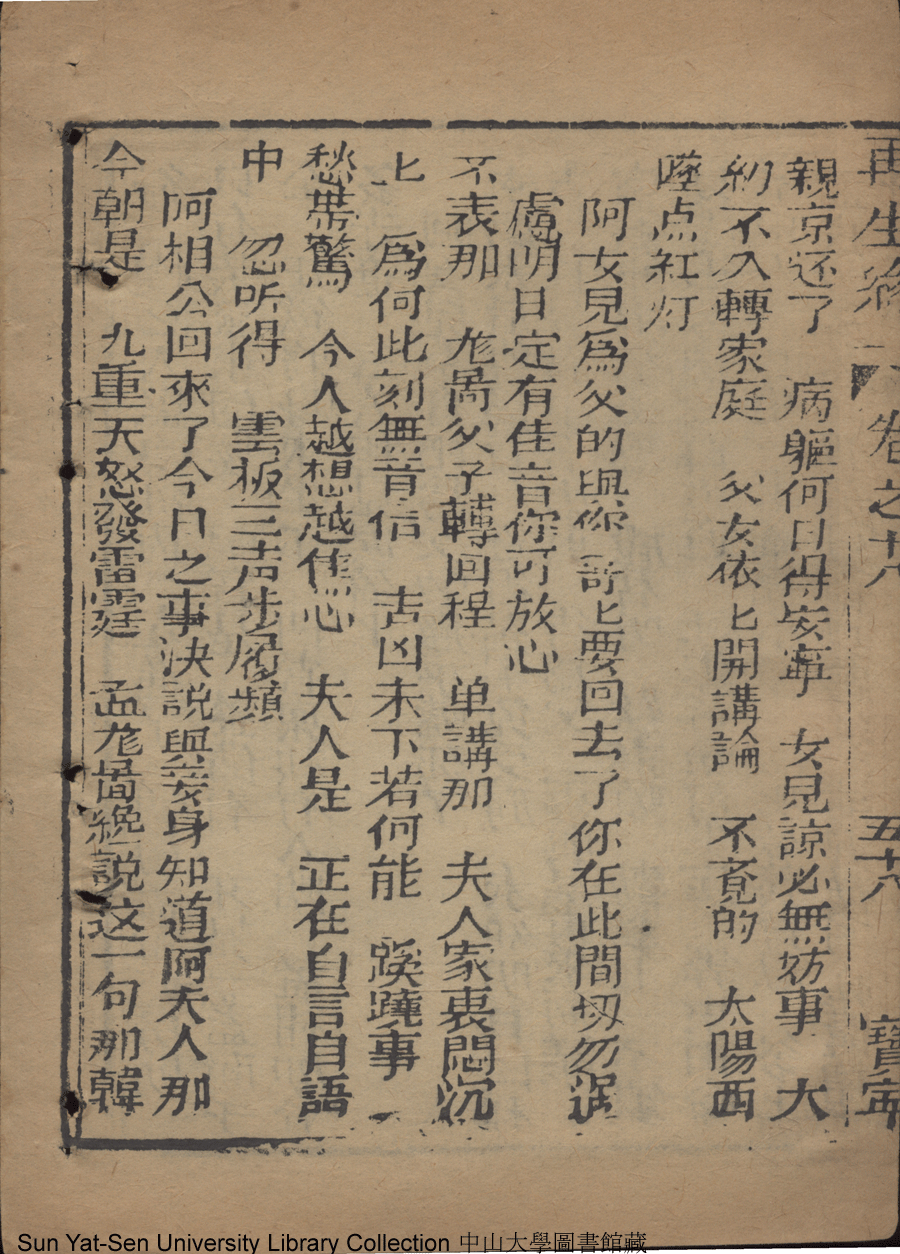 再生緣 卷之十八 五十八 寶寧
親京还了 病軀何日得安寧 女見諒必無妨事 大
約不久轉家庭 父女依匕開講論 不竟的 太陽西
墜点紅灯
阿女見為父的與你哥匕要回去了你在此間切勿
慮明日定有佳音你可放心
不表那 尨啚父子轉回程 单講那 夫人家裏悶沉
匕 爲何此刻無音信 吉凶未卜若何能 蹊蹺事
愁帶驚 令人越想越焦心 夫人是 正在自言自語
中 忽听得 雲板三声步履頻
阿相公回來了今日之事決説與妾身知道阿夫人那
今朝是 九重天怒發雷霆 孟尨啚纔説这一句那韓
Sun Yat-Sen University Library Collection 中山大學圖書館藏